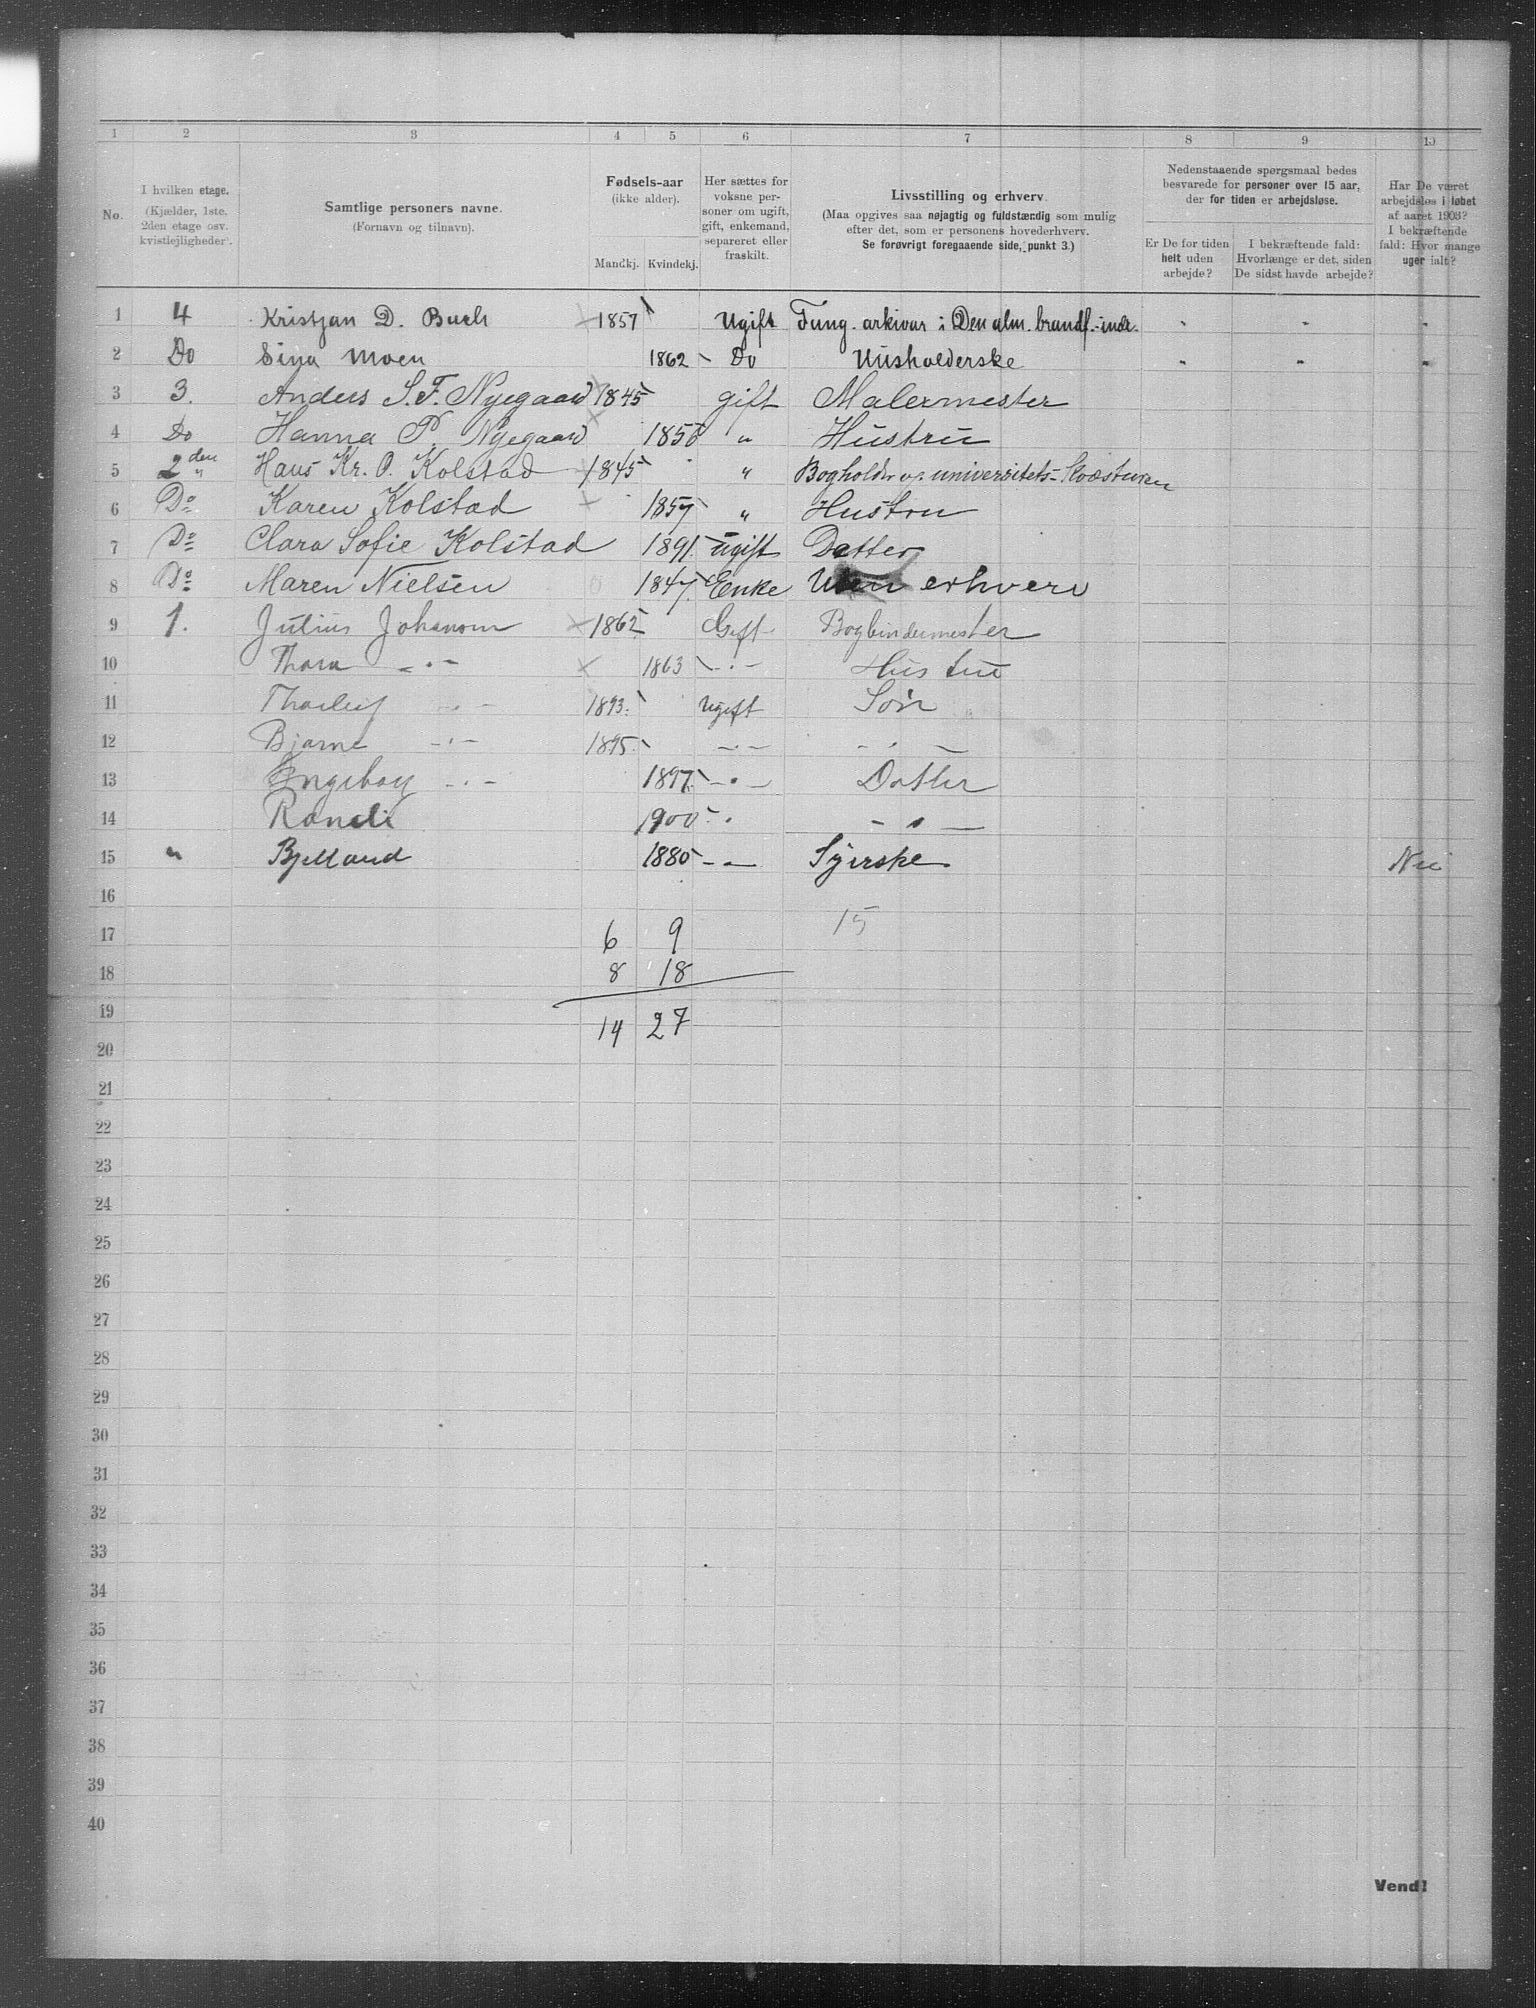 1 2 3 4 5 6 7 8 9 10
No. I hvilken etage. (Kjælder, 1ste, 2den etage osv. kvistlejligheder). Samtlige personers navne. (Fornavn og tilnavn). Fødsels-aar (ikke alder). Mandkj. Kvindekj. Her sættes for voksne personer om ugift, gift, enkemand, separeret eller fraskilt. Livsstilling og erhverv. (Maa opgives saa nøjagtig og fuldstændig som mulig efter det, som er personens hovederhverv. Se forøvrigt foregaaende side, punkt 3.) Nedenstaaende spørgsmaal bedes besvarede for personer over 15 aar, der for tiden er arbejdsløse. Er De for tiden helt uden arbejde? I bekræftende fald: Hvorlænge er det, siden De sidst havde arbejde? Har De været arbejdsløs i løbet af aaret 1903? I bekræftende fald: Hvor mange uger ialt?
1 4 Kristjan D. Buch 1857 Ugift Fung. arkivar i Den alm. brandf.-indr. " " "
2 Do Sina Moen 1862 Do Husholderske " " "
3 3. Anders S. F. Nyegaard 1845 gift Malermester
4 Do Hanna P. Nyegaard 1856 " Hustru
5 2den " Hans Kr. O. Kolstad 1845 " Bogholder v. universitets-Kvæsturen
6 Do Karen Kolstad 1857 " Hustru
7 Do Clara Sofie Kolstad 1891. ugift Datter
8 Do Maren Nielsen 1847. Enke Uten erhverv
9 1. Julius Johansen 1862 Gift Bogbindermester
10 Thora -"- 1863 -"- Hustru
11 Thorleif -"- 1893. Ugift Søn
12 Bjarne -"- 1895. -"- -"-
13 Engeborg -"- 1897. -"- Datter
14 Randi 1900 " -"-
15 " Bjelland 1880 -"- Syerske Nei
16
17 6 9 15
18 8 18
19 14 27
20
21
22
23
24
25
26
27
28
29
30
31
32
33
34
35
36
37
38
39
40
Vend!